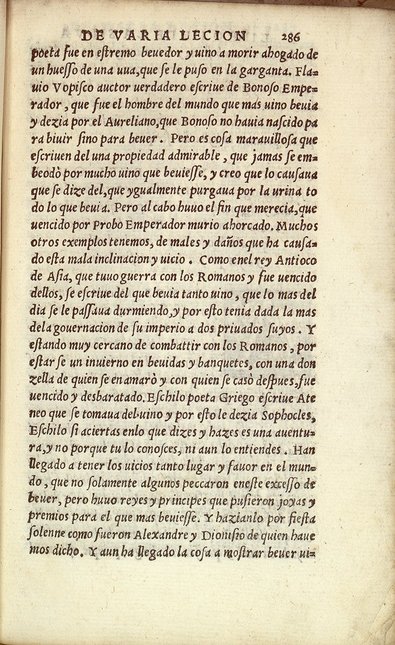 DE VARIA LECION 286
poeta fue en estremo beuedor y uino a morir ahogado de
un huesso de una uua,que se le puso en la garganta. Fla-
uio Vopisco auctor verdadero escriue de Bonoso Empe-
rador, que fue el hombre del mundo que mas uino beuia
y dezia por el Aureliano,que Bonoso no hauia nascido pa
ra biuir sino para beuer. Pero es cosa marauillosa que
escriuen del una propiedad admirable, que jamas se em-
beodò por mucho uino que beuiesse, y creo que lo causaua
que se dize del,que ygualmente purgaua por la urina to
do lo que beuia. Pero al cabo huuo el fin que merecia,que
uencido por Probo Emperador murio ahorcado. Muchos
otros exemplos tenemos, de males y daños que ha causa-
do esta mala inclinacion y uicio. Como en el rey Antioco
de Asia, que tuuo guerra con los Romanos y fue uencido
dellos, se escriue del que beuia tanto uino, que lo mas del
dia se le passaua durmiendo,y por esto tenia dada la mas
dela gouernacion de su imperio a dos priuados suyos. Y
estando muy cercano de combattir con los Romanos, por
estar se un inuierno en beuidas y banquetes, con una don
zella de quien se enamarò y con quien se casò despues,fue
uencido y desbaratado. Eschilo poeta Griego escriue Ate
neo que se tomaua del uino y por esto le dezia Sophocles,
Eschilo si aciertas enlo que dizes y hazes es una auentu-
ra,y no porque tu lo conosces, ni aun lo entiendes. Han
llegado a tener los uicios tanto lugar y fauor en el mun-
do, que no solamente algunos peccaron eneste excesso de
beuer, pero huuo reyes y principes que pusieron joyas y
premios para el que mas beuiesse. Y hazianlo por fiesta
solenne como fueron Alexandre y Dionisio de quien haue
mos dicho. Y aun ha llegado la cosa a mostrar beuer ui-